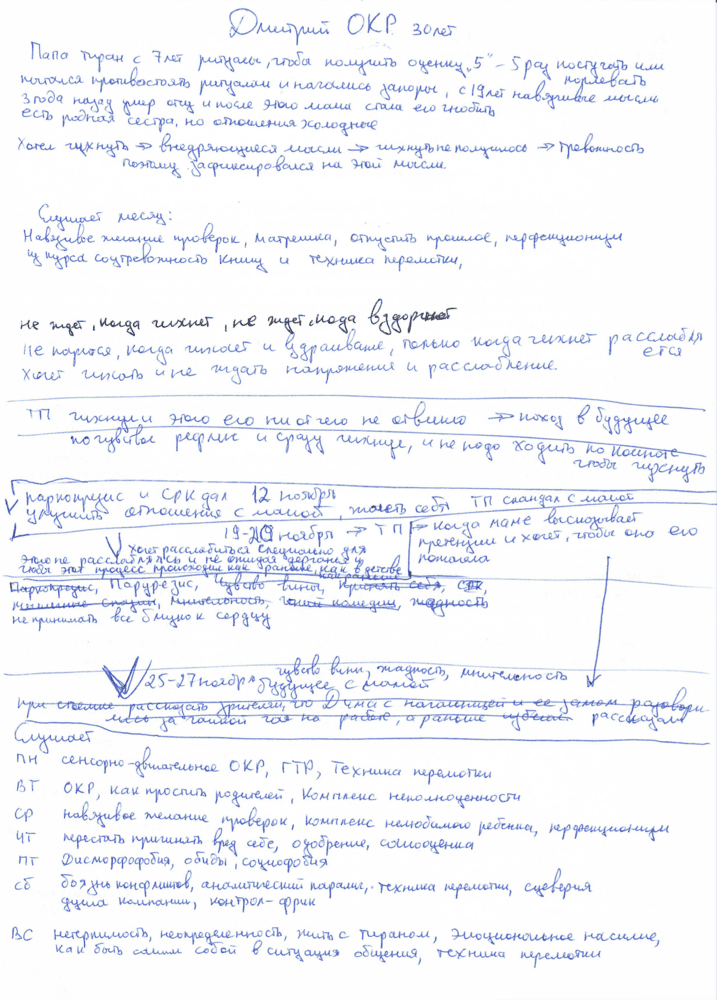 Дмитрий ОКР 30 лет
Папа тиран с 7 лет ритуалы, чтоба получить оценку „5" – 5 раз постучать или
поплевать
пытался противостоять ритуалам и начались запоры, с 19 лет навязчивые мысли
3 года назад умер отец и после этого мама стала его гнобить
есть родная сестра, но отношения холодные
Хотел чихнуть → внедряющиеся мысли → чихнуть не получилось → тревожность
поэтому зафиксировался на этой мысли.
Слушает месяц:
Навязчивое желание проверок, матрешка, отпустить прошлое, перфекционизм
из курса соцтревожность книгу и техника перемотки,
не ждет, когда чихнет, не ждет, когда вздорнет
Не парится, когда чихает и вздрагивание, только когда чихнет расслабля
ется
Хочет чихать и не ждать напряжение и расслабление.
ТП чихнул и этого его ни от чего не отвлекло → поход в будущее
почувствовал рефлекс и сразу чихнул, и не надо ходить по комнате
чтобы чихнуть
паркопрезис и СРК дал 12 ноября
улучшить отношения с мамой, жалеть себя ТП скандал с мамой
19-20 ноября → ТП → когда маме высказывает
претензии и хочет, чтобы она его
поняла
Хочет расслабиться специально для
этого не расслаблялись и не ожидая дерганья и
чтобы этот процесс происходил как раньше, как в детстве
как раньше
Паркопрезис, Парурезис, чувство вины, принять себя,
мышечные спазмы, мнительность, жадность
не принимать все близко к сердцу
25-27 ноября чувство вины, жадность, мнительность
будущее с мамой
при съемке рассказать зрителям, что Дима с начальницей и ее замом разговари
лись за чашкой чая на работе, а раньше избегал рассказам
Слушает
ПН сенсорно-двигательное ОКР, ГТР, Техника перемотки
ВТ ОКР, как простить родителей, Комплекс неполноценности
СР навязчивое желание проверок, комплекс нелюбимого ребенка, перфекционизм
ЧТ перестать причинять вред себе, одобрение, самооценка
ПТ Дисморфофобия, обиды, социофобия
СБ боязнь конфликтов, аналитический паралич, техника перемотки, суеверия
душа компании, контрол-фрик
ВС нетерпимость, неопределенность, жить с тираном, Эмоциональное насилие,
как быть самим собой в ситуация общения, техника перемотки